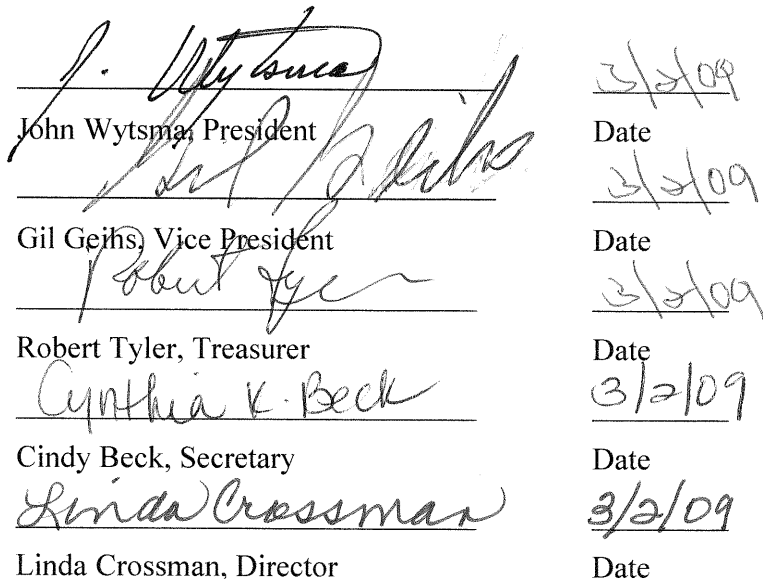 J. Wytsma 3/2/09
John Wytsma, President Date
Gil Geihs 3/2/09
Gil Geihs, Vice President Date
Robert Tyler 3/2/09
Robert Tyler, Treasurer Date
Cynthia K. Beck 3/2/09
Cindy Beck, Secretary Date
Linda Crossman 3/2/09
Linda Crossman, Director Date